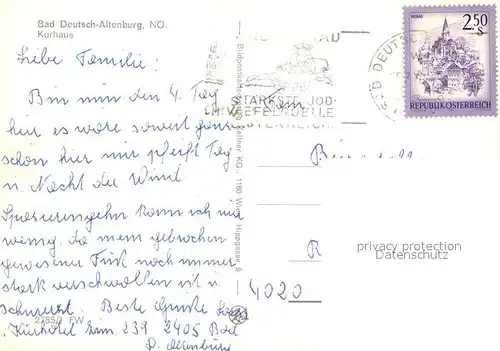 Bad Deutsch-Altenburg, NÖ.
Kurhaus
Liebe Familie:
Bin nun den 4. Tag
hier es wäre soweit ganz
schön hier nur pfeift Tag
u. Nacht der Wind
Spazierengehn kann ich nur
wenig, da mein gebrochen
gewesener Fuß noch immer
stark verschwollen ist u.
schmerzt. Beste Grüße
Kurhotel Zim. 239 2405 Bad
D. Altenburg
2785/1 FW
STÄRKSTE JOD-
SCHWEFELQUELLE
ÖSTERREICHS
KG · 1160 Wien, Hippgasse 8
BAD DEUTSCH
WERFEN
2.50
S
REPUBLIK ÖSTERREICH
R
4020
privacy protection
Datenschutz